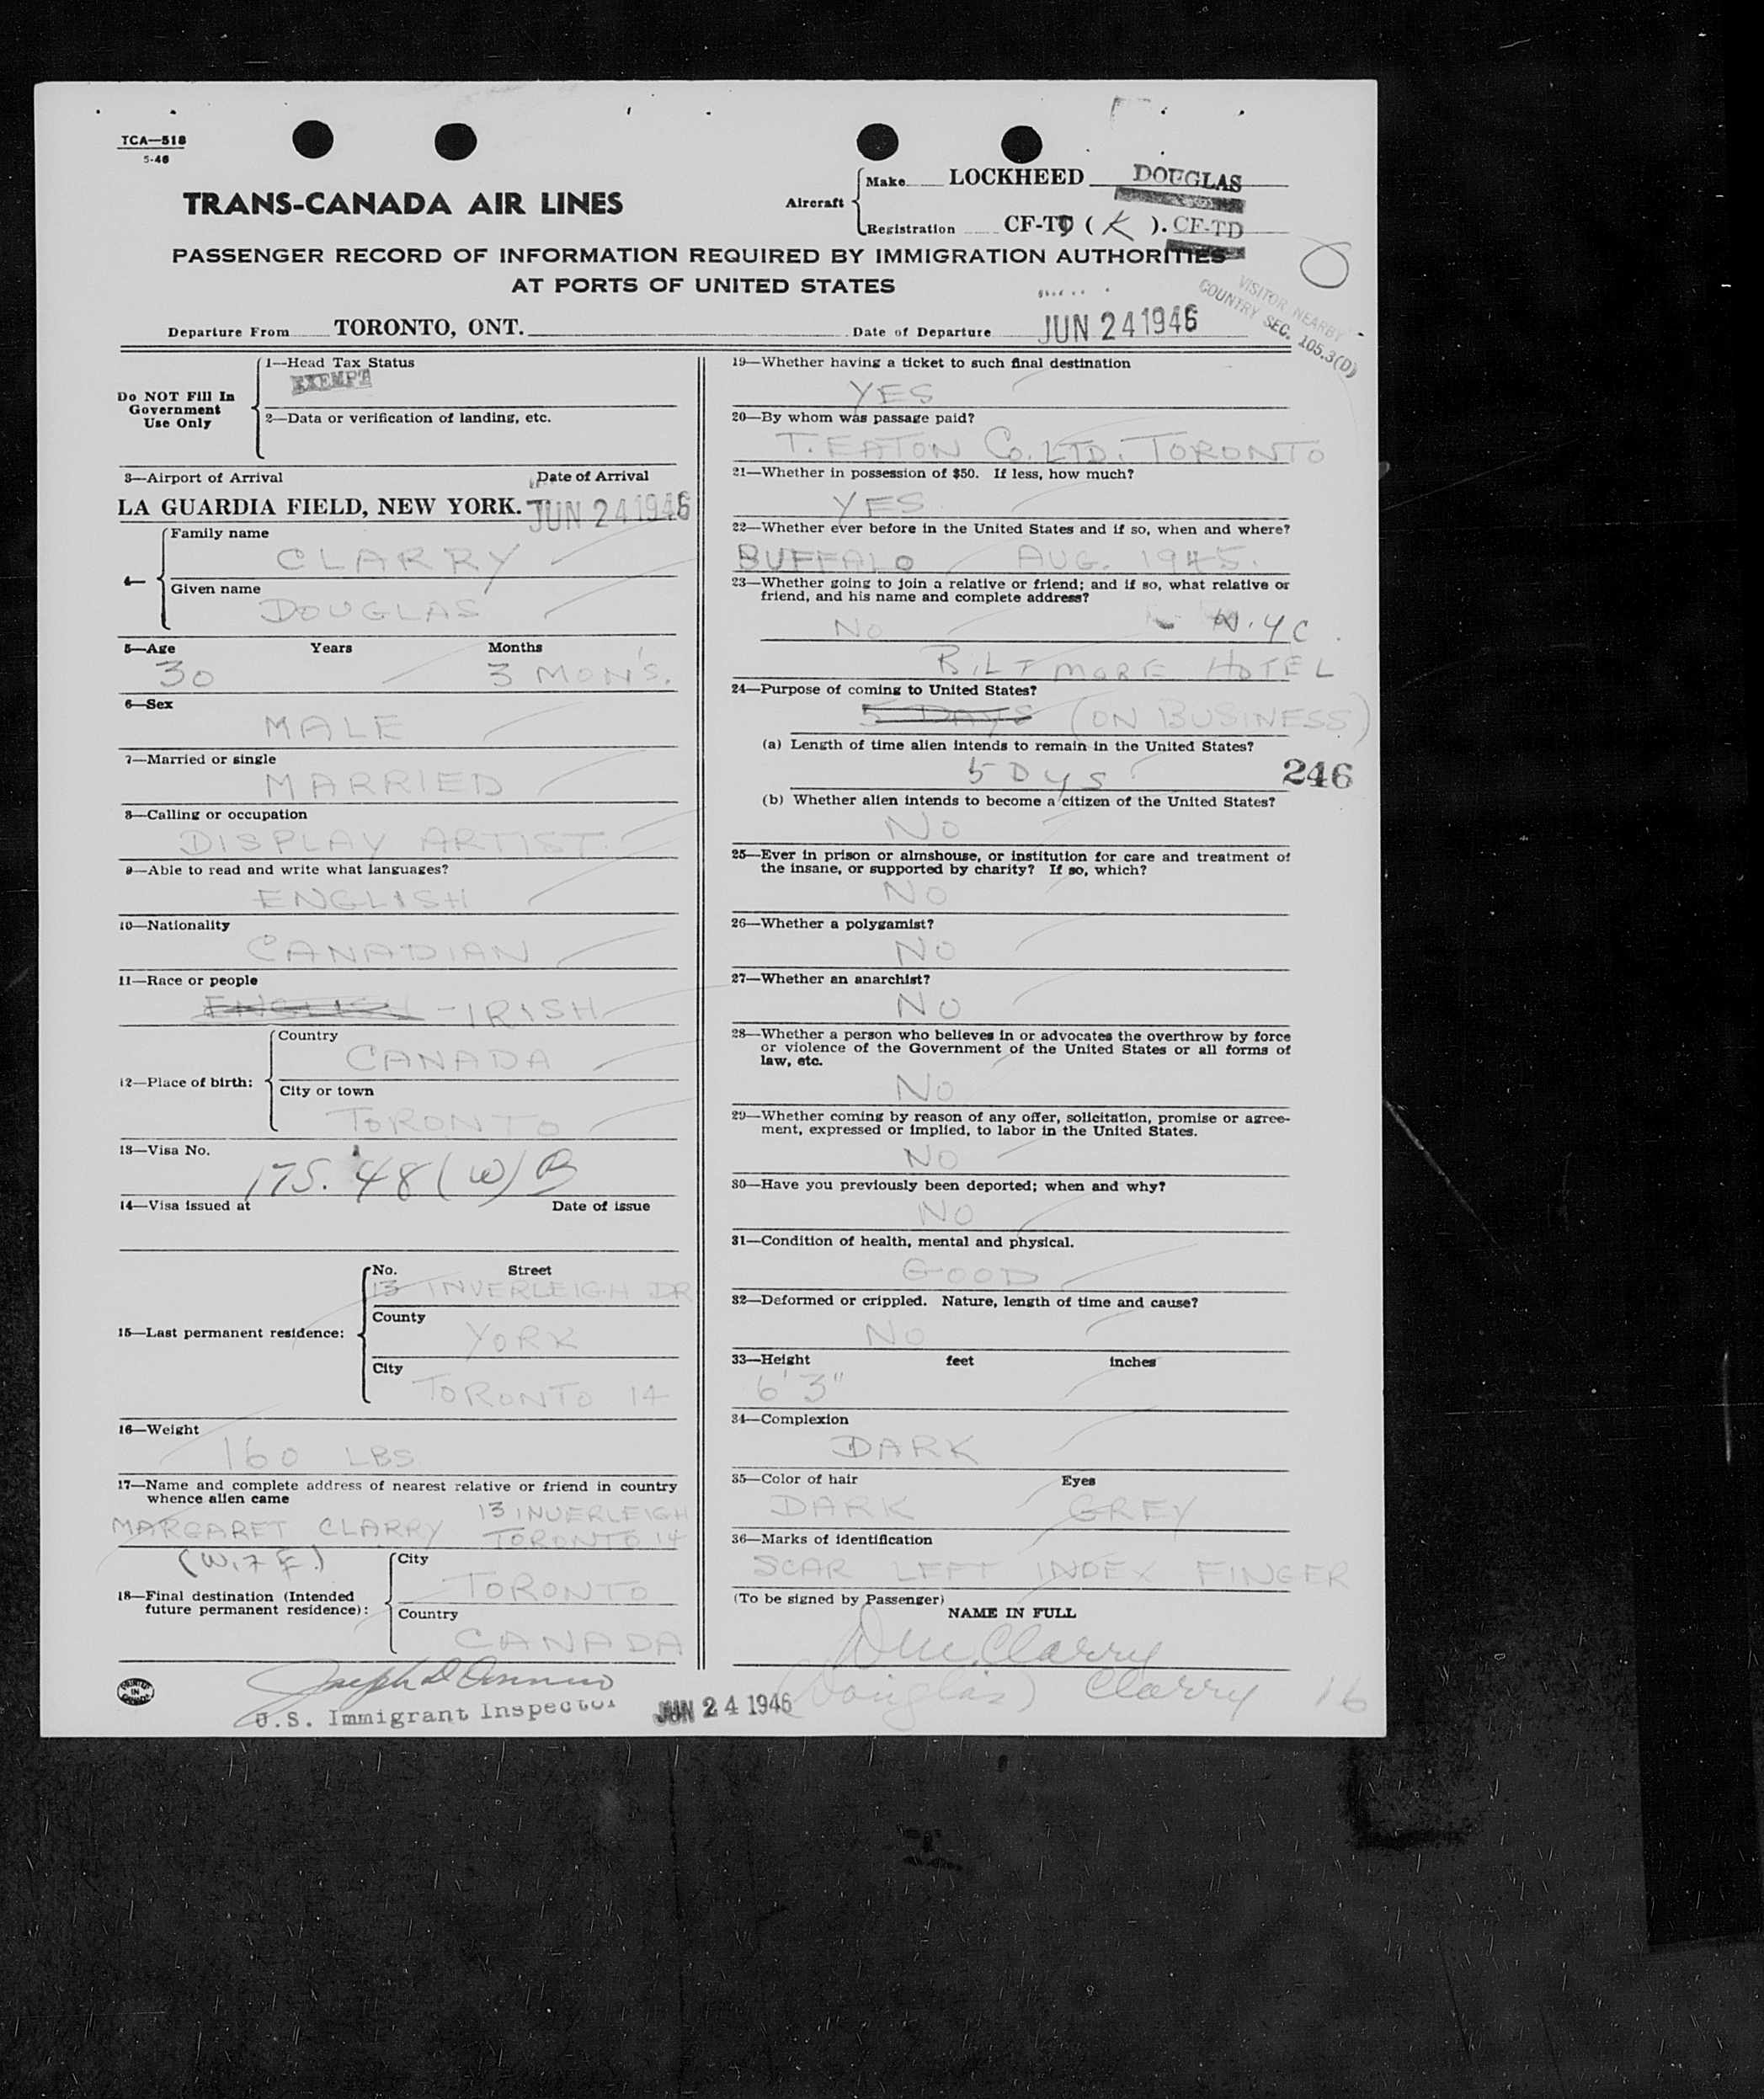 TCA—518
5-46
TRANS-CANADA AIR LINES
Aircraft
Make LOCKHEED DOUGLAS
Registration CF-TD ( K ). CF-TD
PASSENGER RECORD OF INFORMATION REQUIRED BY IMMIGRATION AUTHORITIES
AT PORTS OF UNITED STATES
VISITOR NEARBY
COUNTRY SEC. 105.3(D)
Departure From TORONTO, ONT. Date of Departure JUN 24 1946
Do NOT Fill In
Government
Use Only
1—Head Tax Status
EXEMPT
2—Data or verification of landing, etc.
3—Airport of Arrival Date of Arrival
LA GUARDIA FIELD, NEW YORK. JUN 24 1946
4—
Family name
CLARRY
Given name
DOUGLAS
5—Age Years Months
30 3 MON'S.
6—Sex
MALE
7—Married or single
MARRIED
8—Calling or occupation
DISPLAY ARTIST
9—Able to read and write what languages?
ENGLISH
10—Nationality
CANADIAN
11—Race or people
ENGLISH - IRISH
12—Place of birth:
Country
CANADA
City or town
TORONTO
13—Visa No.
175. 48 (W) B
14—Visa issued at Date of issue
15—Last permanent residence:
No. Street
13 INVERLEIGH DR
County
YORK
City
TORONTO 14
16—Weight
160 LBS
17—Name and complete address of nearest relative or friend in country
whence alien came
13 INVERLEIGH
MARGARET CLARRY TORONTO 14
(WIFE)
18—Final destination (Intended
future permanent residence):
City
TORONTO
Country
CANADA
PRINTED
IN
CANADA
U.S. Immigrant Inspector JUN 24 1946
19—Whether having a ticket to such final destination
YES
20—By whom was passage paid?
T. EATON Co. LTD. TORONTO
21—Whether in possession of $50. If less, how much?
YES
22—Whether ever before in the United States and if so, when and where?
BUFFALO AUG. 1945.
23—Whether going to join a relative or friend; and if so, what relative or
friend, and his name and complete address?
No N.Y.C.
BILTMORE HOTEL
24—Purpose of coming to United States?
5 DAYS (ON BUSINESS)
(a) Length of time alien intends to remain in the United States?
5 Dys 246
(b) Whether alien intends to become a citizen of the United States?
No
25—Ever in prison or almshouse, or institution for care and treatment of
the insane, or supported by charity? If so, which?
No
26—Whether a polygamist?
No
27—Whether an anarchist?
No
28—Whether a person who believes in or advocates the overthrow by force
or violence of the Government of the United States or all forms of
law, etc.
No
29—Whether coming by reason of any offer, solicitation, promise or agree-
ment, expressed or implied, to labor in the United States.
No
30—Have you previously been deported; when and why?
No
31—Condition of health, mental and physical.
GOOD
32—Deformed or crippled. Nature, length of time and cause?
No
33—Height feet inches
6' 3"
34—Complexion
DARK
35—Color of hair Eyes
DARK GREY
36—Marks of identification
SCAR LEFT INDEX FINGER
(To be signed by Passenger)
NAME IN FULL
Clarry
(Douglas) Clarry 16